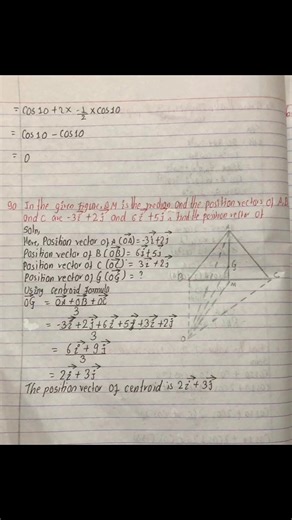 = Cos10 + 2 × -1/2 × Cos10
= Cos10 - Cos10
= 0
In the given figure, AM is the median and the position vectors of A, B
and C are -3i+2j and 6i+5j, find the position vector of
Soln,
Here, Position vector of A (OA) = -3i+2j
Position vector of B (OB) = 6i+5j
Position vector of C (OC) = 3i+2j
Position vector of G (OG) = ?
Using Centroid formula
OG = OA + OB + OC / 3
= -3i+2j+6i+5j+3i+2j / 3
= 6i + 9j / 3
= 2i + 3j
The position vector of centroid is 2i+3j
A
B
C
G
M
O